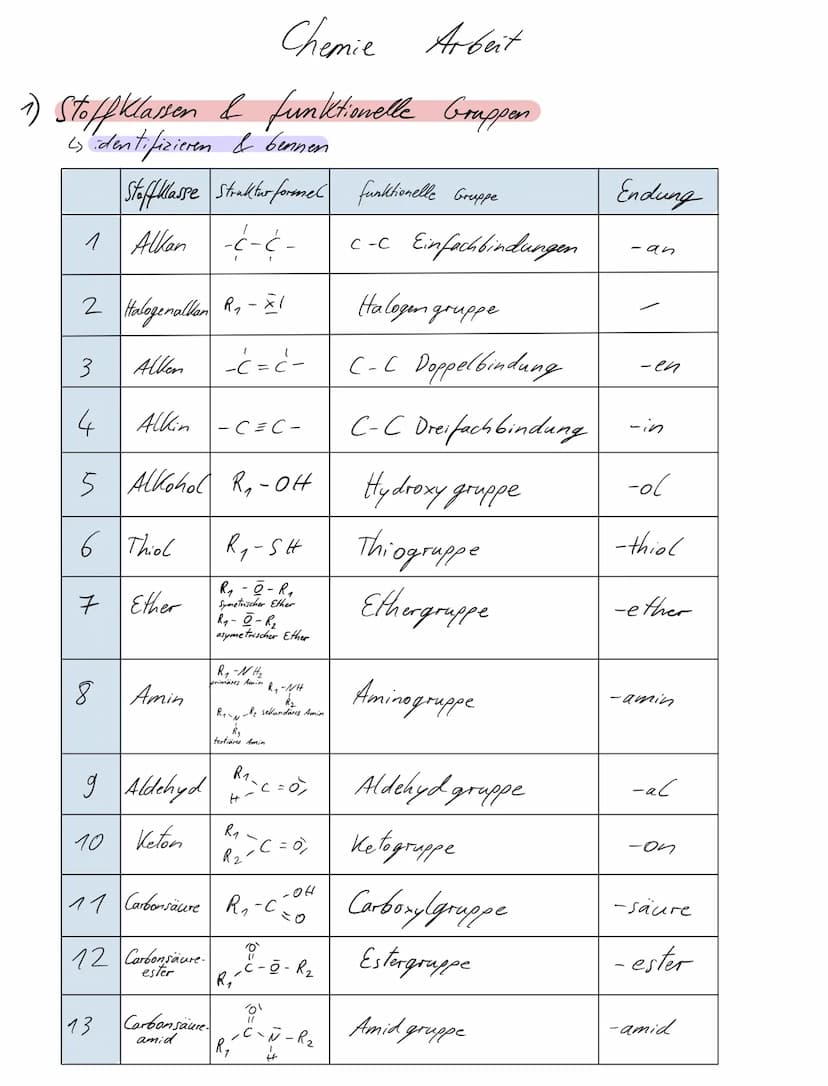 Chemie Arbeit
1) Stoffklassen & funktionelle Gruppen
↳ identifizieren & bennen
Stoffklasse Strukturformel funktionelle Gruppe Endung
1 Alkan -C-C- C-C Einfachbindungen -an
2 Halogenalkan R₁-X̲̅| Halogengruppe -
3 Alken -C=C- C-C Doppelbindung -en
4 Alkin -C≡C- C-C Dreifachbindung -in
5 Alkohol R₁-OH Hydroxygruppe -ol
6 Thiol R₁-SH Thiogruppe -thiol
7 Ether R₁-O̲̅-R₁ Ethergruppe -ether
symetrischer Ether
R₁-O̲̅-R₂
asymetrischer Ether
8 Amin R₁-NH₂ Aminogruppe -amin
primäres Amin
R₁-NH
R₂
sekundäres Amin
R₁-N-R₂
R₃
tertiäres Amin
9 Aldehyd R₁ Aldehydgruppe -al
H C=O
10 Keton R₁ Ketogruppe -on
R₂ C=O
11 Carbonsäure R₁-C-OH Carboxylgruppe -säure
=O
12 Carbonsäure- O Estergruppe -ester
ester R₁-C-O̲̅-R₂
13 Carbonsäure- O Amidgruppe -amid
amid R₁-C-N̅-R₂
H